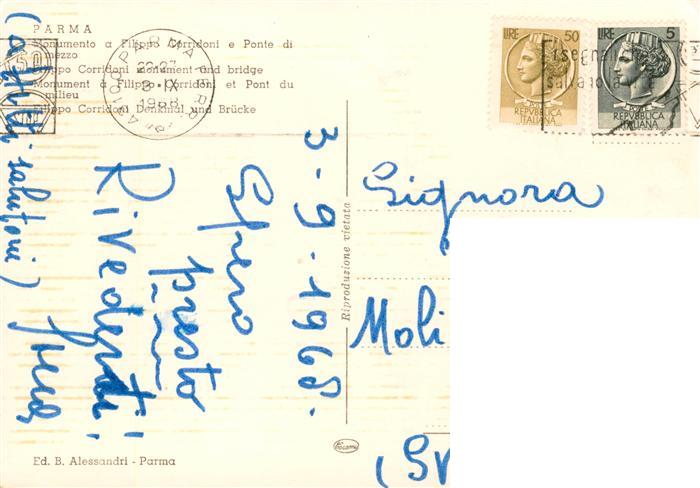 PARMA
Monumento a Filippo Corridoni e Ponte di
mezzo
Filippo Corridoni monument and bridge
Monument a Filippo Corridoni et Pont du
milieu
Filippo Corridoni Denkmal und Brücke
PARMA
22-23
1968
LIRE 50
REPVBBLICA
ITALIANA
LIRE 5
REPVBBLICA
ITALIANA
3-9-1968.
Spero
presto
Rivederti!
saluti
Riproduzione vietata
Signora
Moli
(Sv
Ed. B. Alessandri - Parma